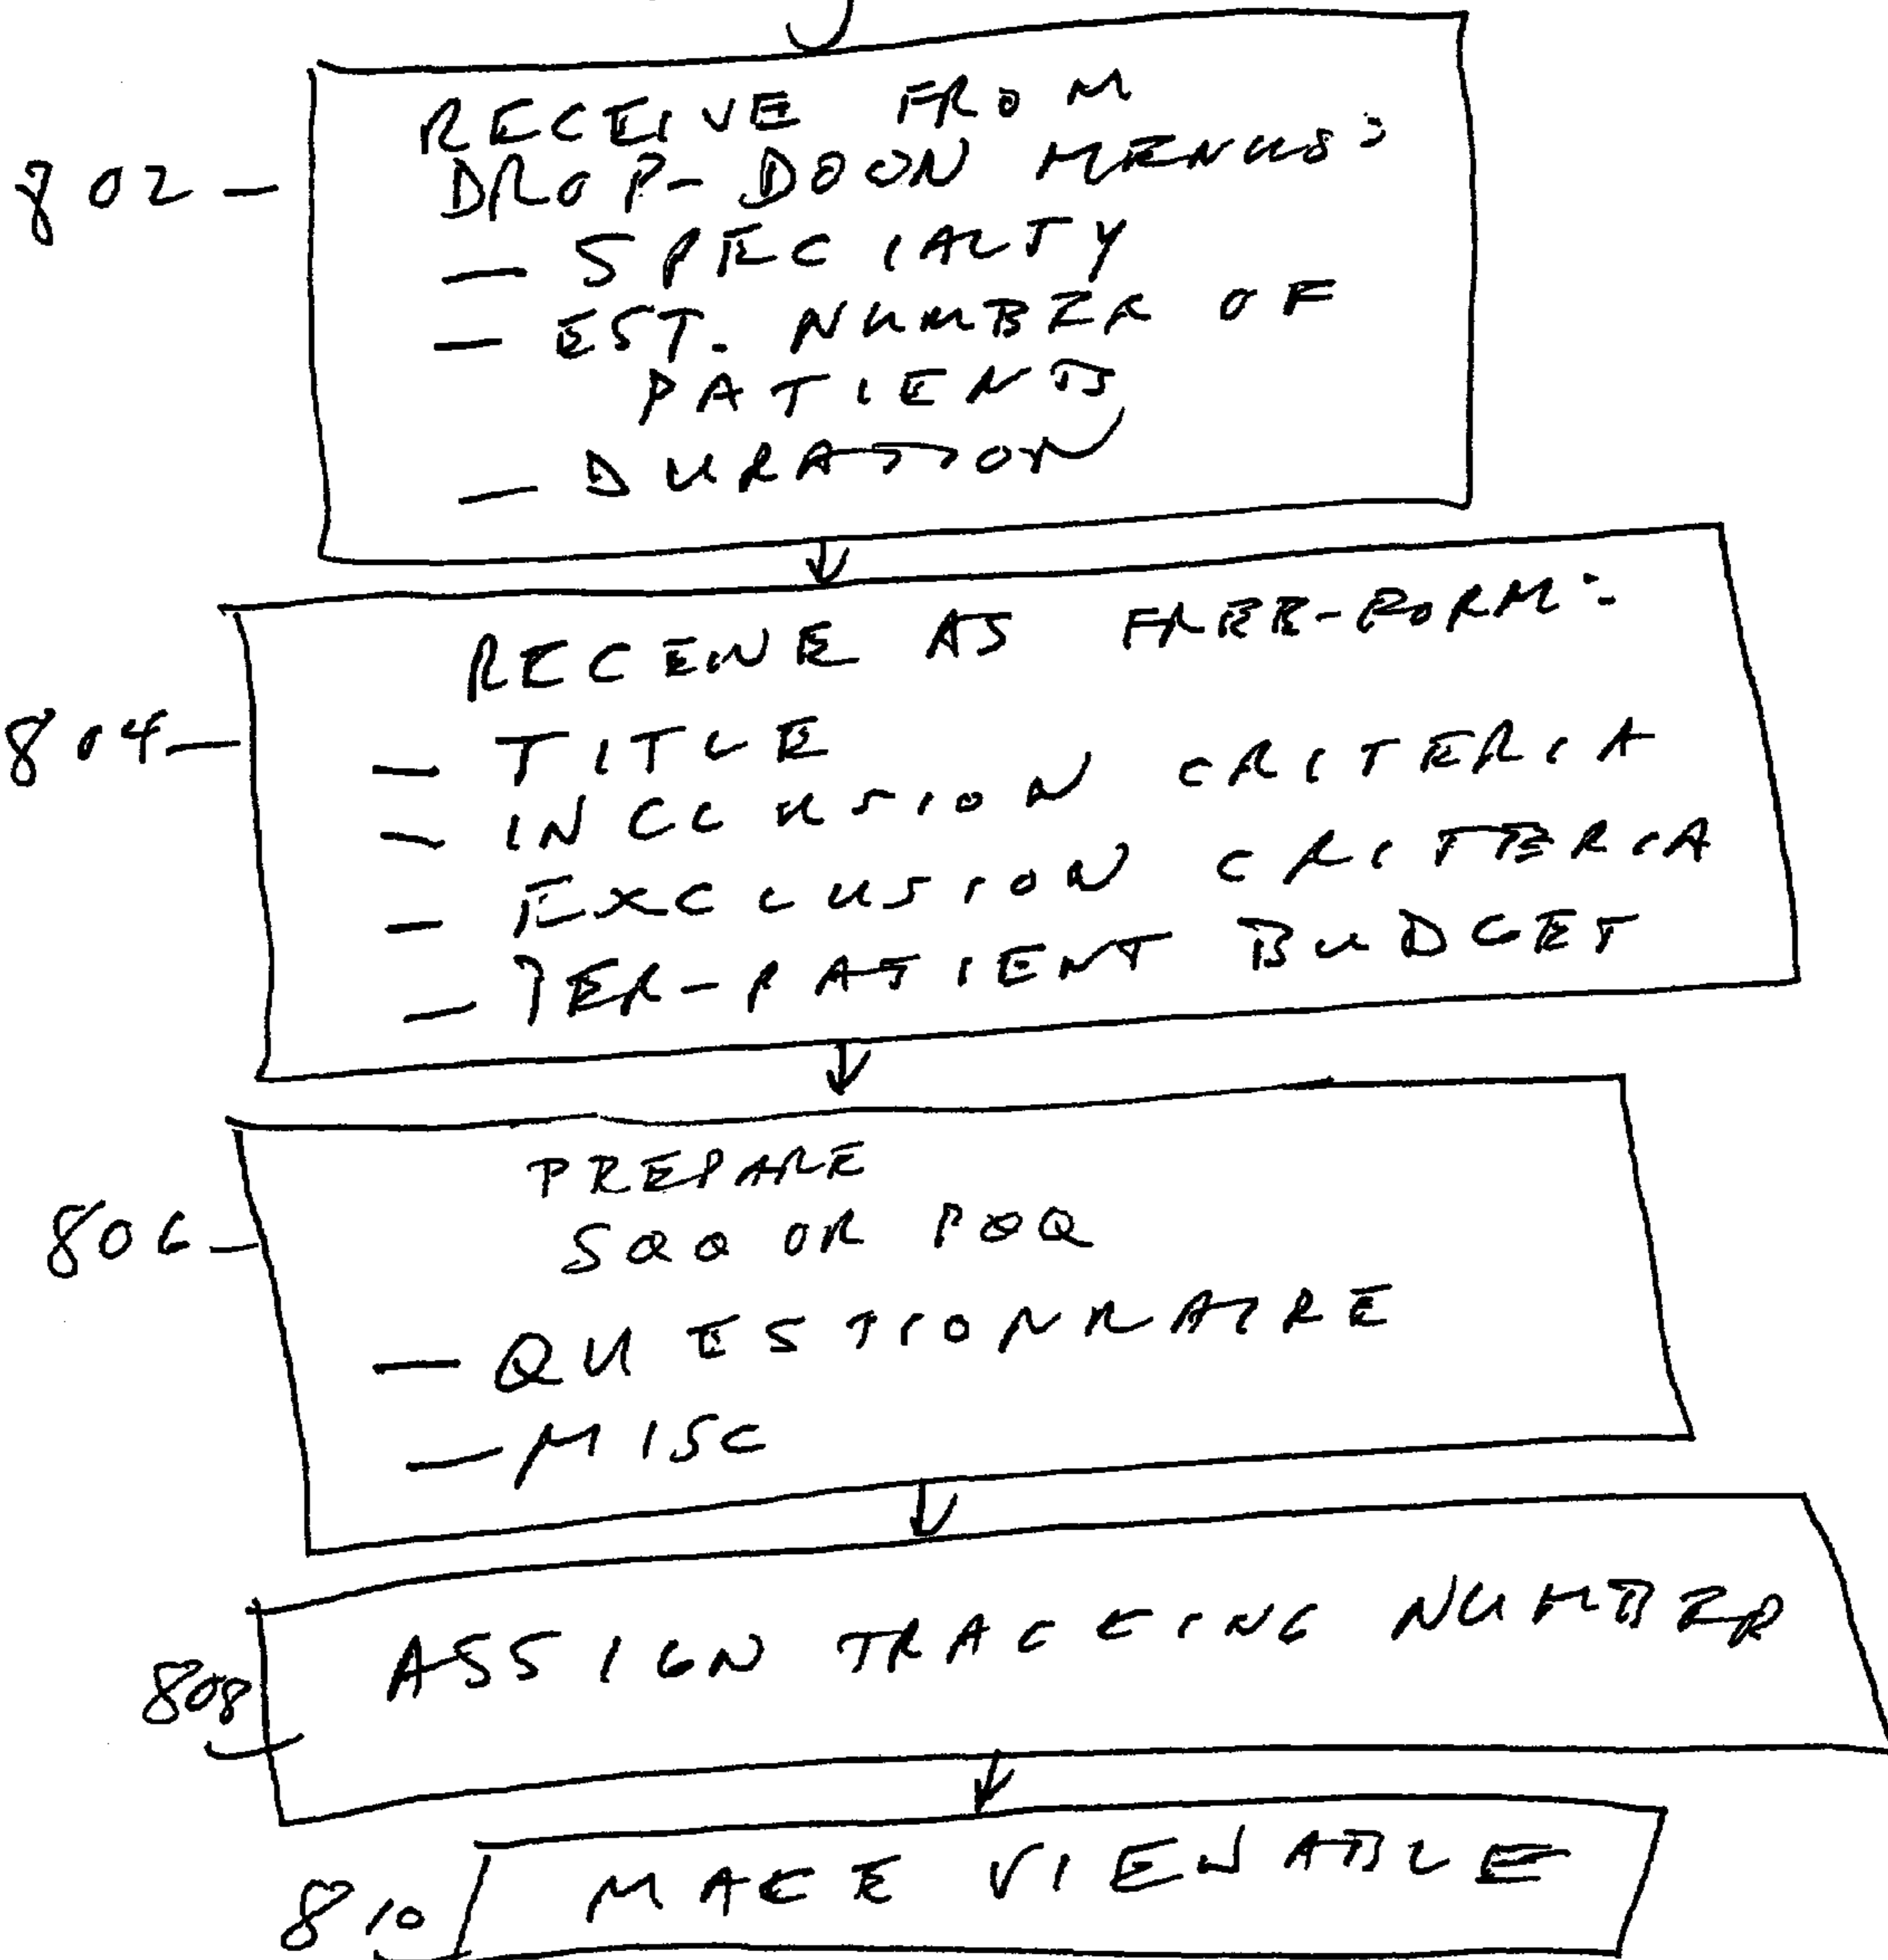 802 - RECEIVE FROM
DROP-DOWN MENUS:
- SPECIALTY
- EST. NUMBER OF
PATIENTS
- DURATION
804 - RECEIVE AS FREE-FORM:
- TITLE
- INCLUSION CRITERIA
- EXCLUSION CRITERIA
- PER-PATIENT BUDGET
806 - PREPARE
SQQ OR PQQ
- QUESTIONNAIRE
- MISC
808 ASSIGN TRACKING NUMBER
810 MAKE VIEWABLE